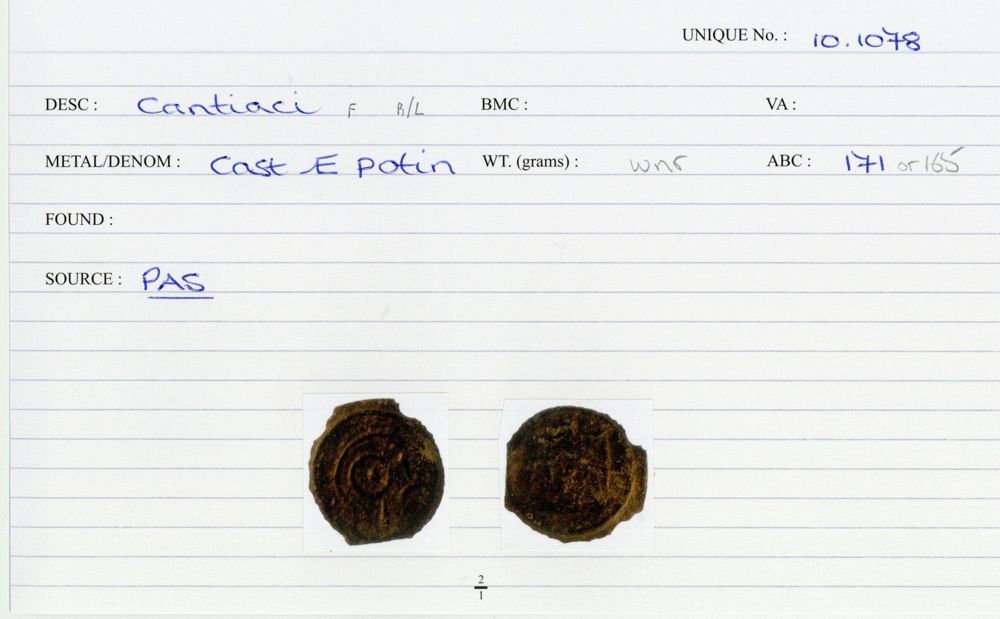 UNIQUE No. : 10.1078
DESC : Cantiaci F B/L BMC : VA :
METAL/DENOM : Cast Æ potin WT. (grams) : wnr ABC : 171 or 165
FOUND :
SOURCE : PAS
2
1